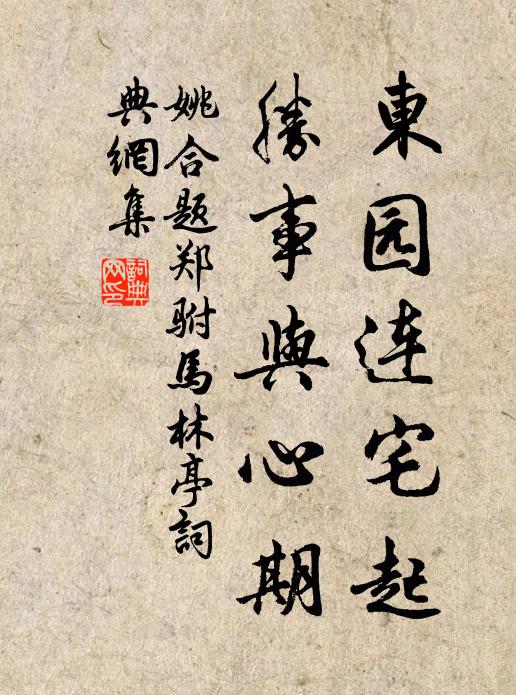 東园连宅起
勝事與心期
姚合题郑駙馬林亭詞
典網集
詞典
网印